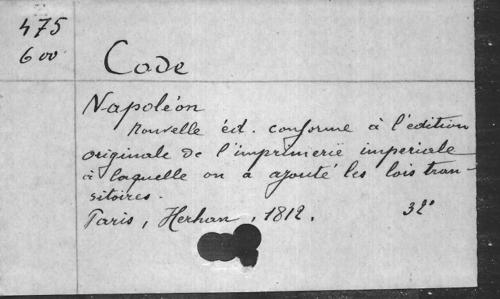 475
600
Code
Napoléon
Nouvelle éd. conforme à l'édition
originale de l'imprimerie imperiale
à laquelle on a ajouté les lois tran-
sitoires.
Paris, Herhan, 1812. 32°